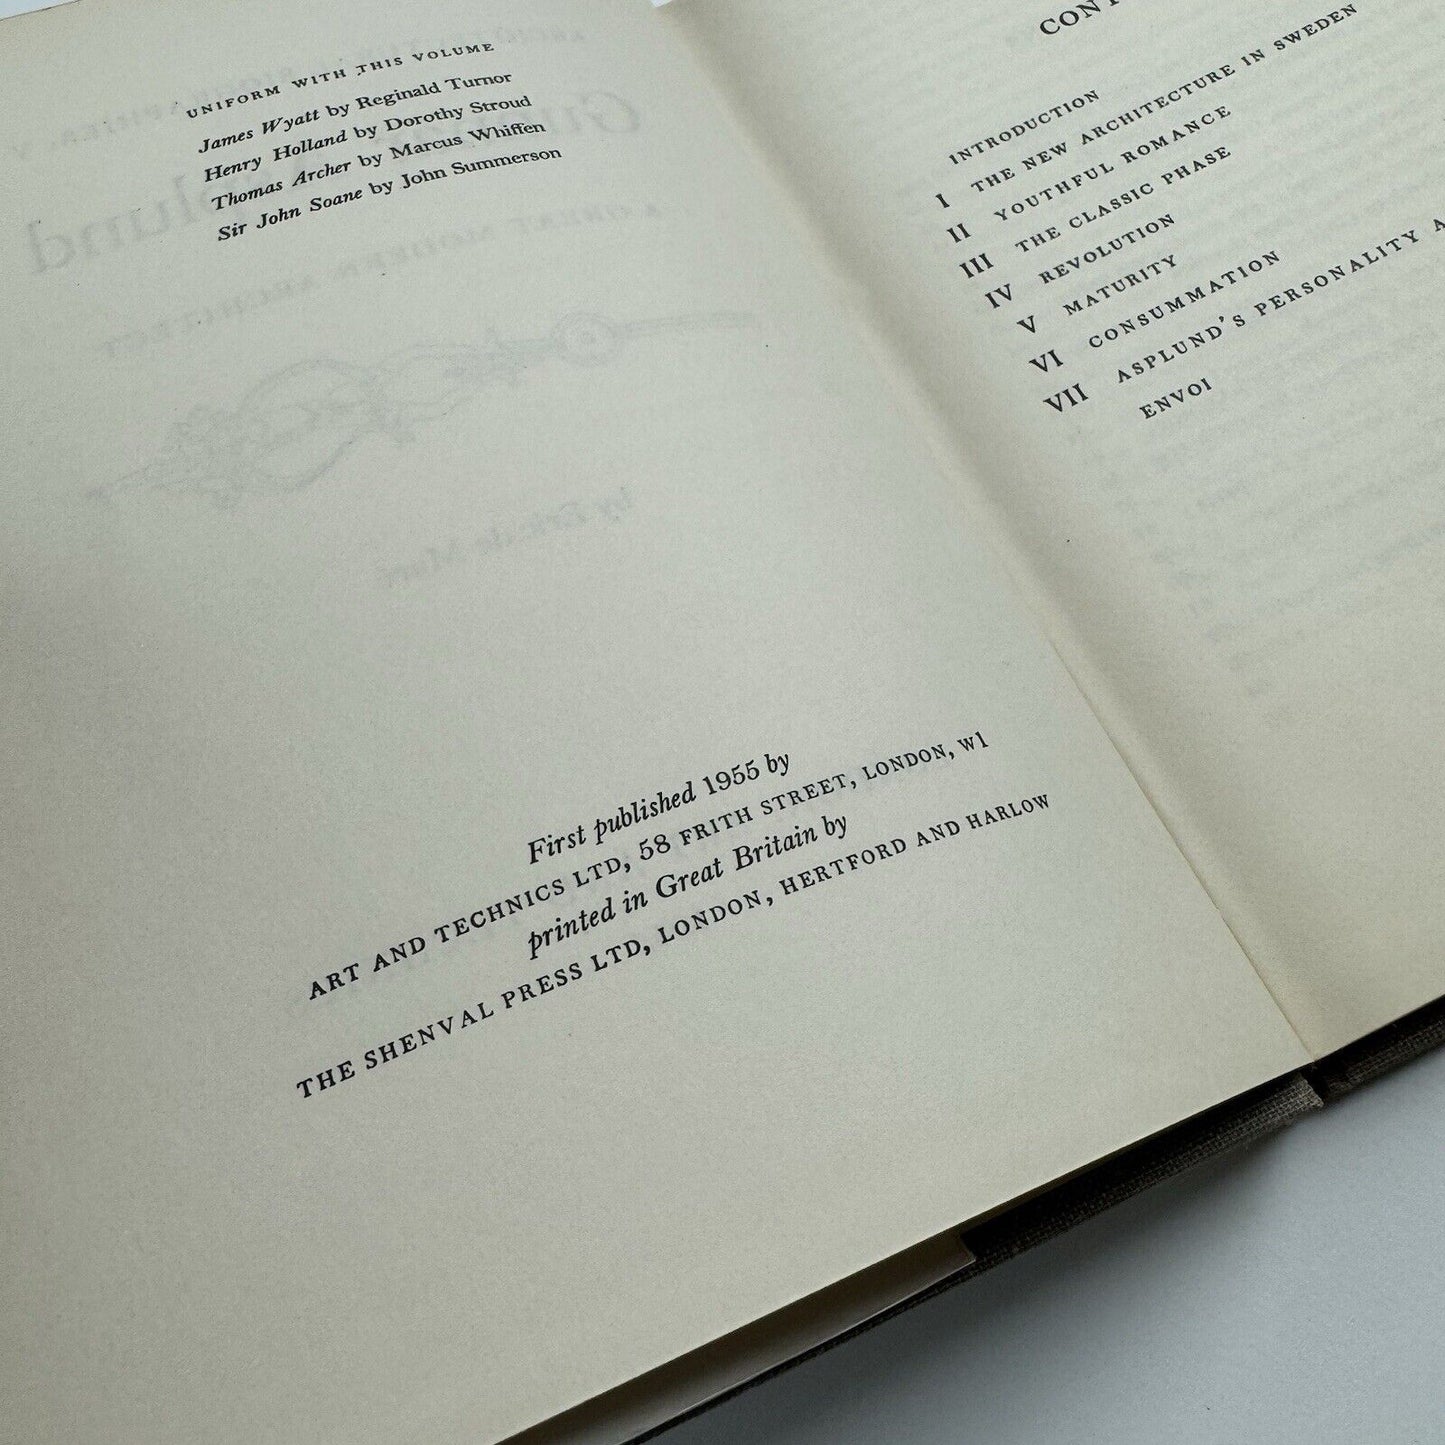 UNIFORM WITH THIS VOLUME
James Wyatt by Reginald Turnor
Henry Holland by Dorothy Stroud
Thomas Archer by Marcus Whiffen
Sir John Soane by John Summerson
First published 1955 by
ART AND TECHNICS LTD, 58 FRITH STREET, LONDON, W1
printed in Great Britain by
THE SHENVAL PRESS LTD, LONDON, HERTFORD AND HARLOW
CONT
INTRODUCTION
I THE NEW ARCHITECTURE IN SWEDEN
II YOUTHFUL ROMANCE
III THE CLASSIC PHASE
IV REVOLUTION
V MATURITY
VI CONSUMMATION
VII ASPLUND'S PERSONALITY A
ENVOI